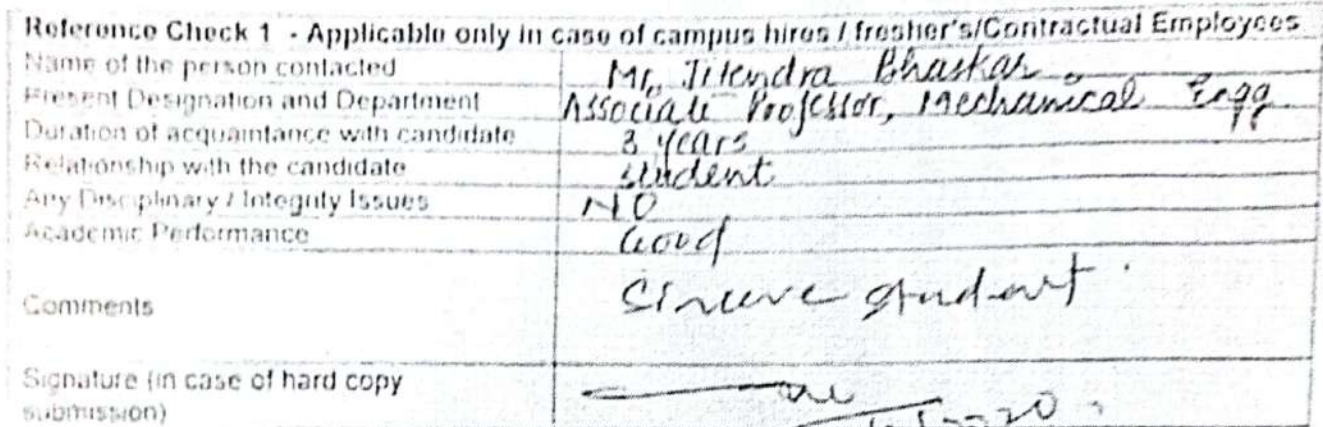 Reference Check 1 - Applicable only in case of campus hires / fresher's/Contractual Employees
Name of the person contacted Mr. Jitendra Bhaskar
Present Designation and Department Associate Professor, Mechanical Engg
Duration of acquaintance with candidate 3 years
Relationship with the candidate student
Any Disciplinary / Integrity Issues NO
Academic Performance Good
Comments Sincere student.
Signature (in case of hard copy
submission)